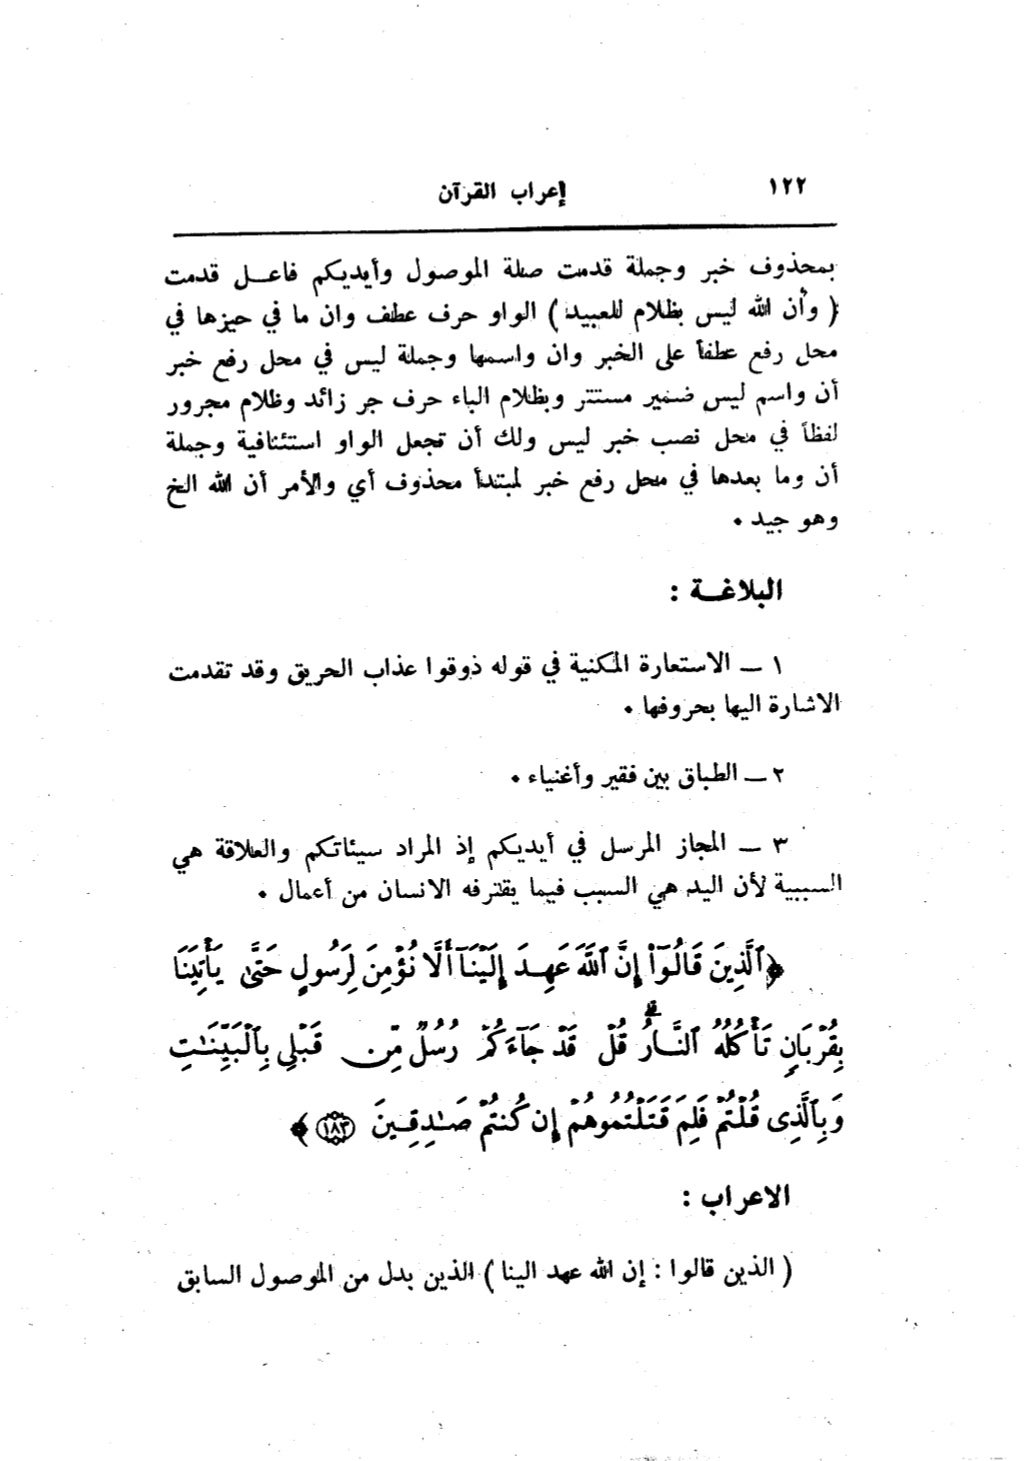 ١٢٢
إعراب القرآن
بمحذوف خبر وجملة قدمت صلة الموصول وأيديكم فاعل قدمت
( وأن الله ليس بظلام للعبيد ) الواو حرف عطف وان ما في حيزها في
محل رفع عطفاً على الخبر وان واسمها وجملة ليس في محل رفع خبر
أن واسم ليس ضمير مستتر وبظلام الباء حرف جر زائد وظلام مجرور
لفظاً في محل نصب خبر ليس ولك أن تجعل الواو استئنافية وجملة
أن وما بعدها في محل رفع خبر لمبتدأ محذوف أي والأمر أن الله الخ
وهو جيد .
البلاغة :
١ ـ الاستعارة المكنية في قوله ذوقوا عذاب الحريق وقد تقدمت
الاشارة اليها بحروفها .
٢ ـ الطباق بين فقير وأغنياء .
٣ ـ المجاز المرسل في أيديكم إذ المراد سيئاتكم والعلاقة هي
السببية لأن اليد هي السبب فيما يقترفه الانسان من أعمال .
﴿ٱلَّذِينَ قَالُوٓا۟ إِنَّ ٱللَّهَ عَهِدَ إِلَيْنَآ أَلَّا نُؤْمِنَ لِرَسُولٍ حَتَّىٰ يَأْتِيَنَا
بِقُرْبَانٍ تَأْكُلُهُ ٱلنَّارُ ۗ قُلْ قَدْ جَآءَكُمْ رُسُلٌ مِّن قَبْلِى بِٱلْبَيِّنَـٰتِ
وَبِٱلَّذِى قُلْتُمْ فَلِمَ قَتَلْتُمُوهُمْ إِن كُنتُمْ صَـٰدِقِينَ ١٨٣﴾
الاعراب :
( الذين قالوا : إن الله عهد الينا ) الذين بدل من الموصول السابق